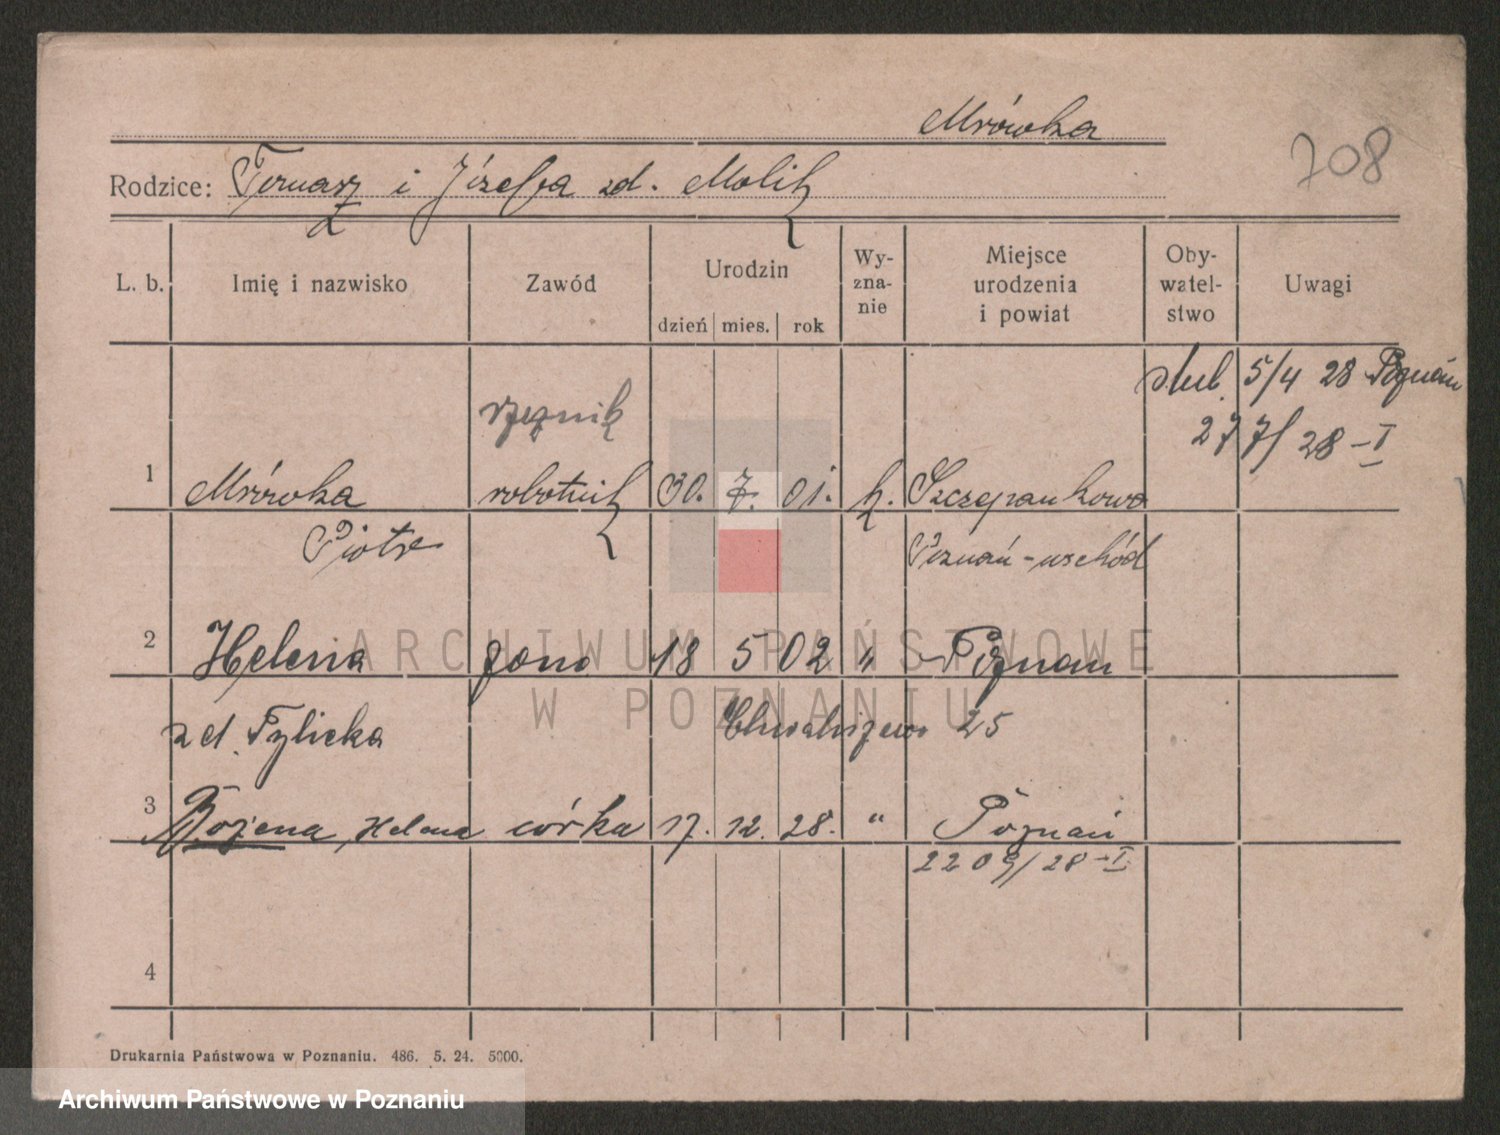 Mrówka
708
Rodzice: Tomasz i Józefa zd. Molik
L. b. Imię i nazwisko Zawód Urodzin dzień mies. rok Wy-zna-nie Miejsce urodzenia i powiat Oby-watel-stwo Uwagi
ślub. 5/4 28 Poznań
rzeźnik
277/28-I
1 Mrówka robotnik 30. 7. 01. k. Szczepankowo
Piotr Poznań-wschód
2 Helena żona 18 5 02 " Poznań
zd. Fylicka Chwaliszewo 25
3 Bożena, Helena córka 17. 12. 28. " Poznań
2209/28-I
4
Drukarnia Państwowa w Poznaniu. 486. 5. 24. 5000.
ARCHIWUM PAŃSTWOWE
W POZNANIU
Archiwum Państwowe w Poznaniu